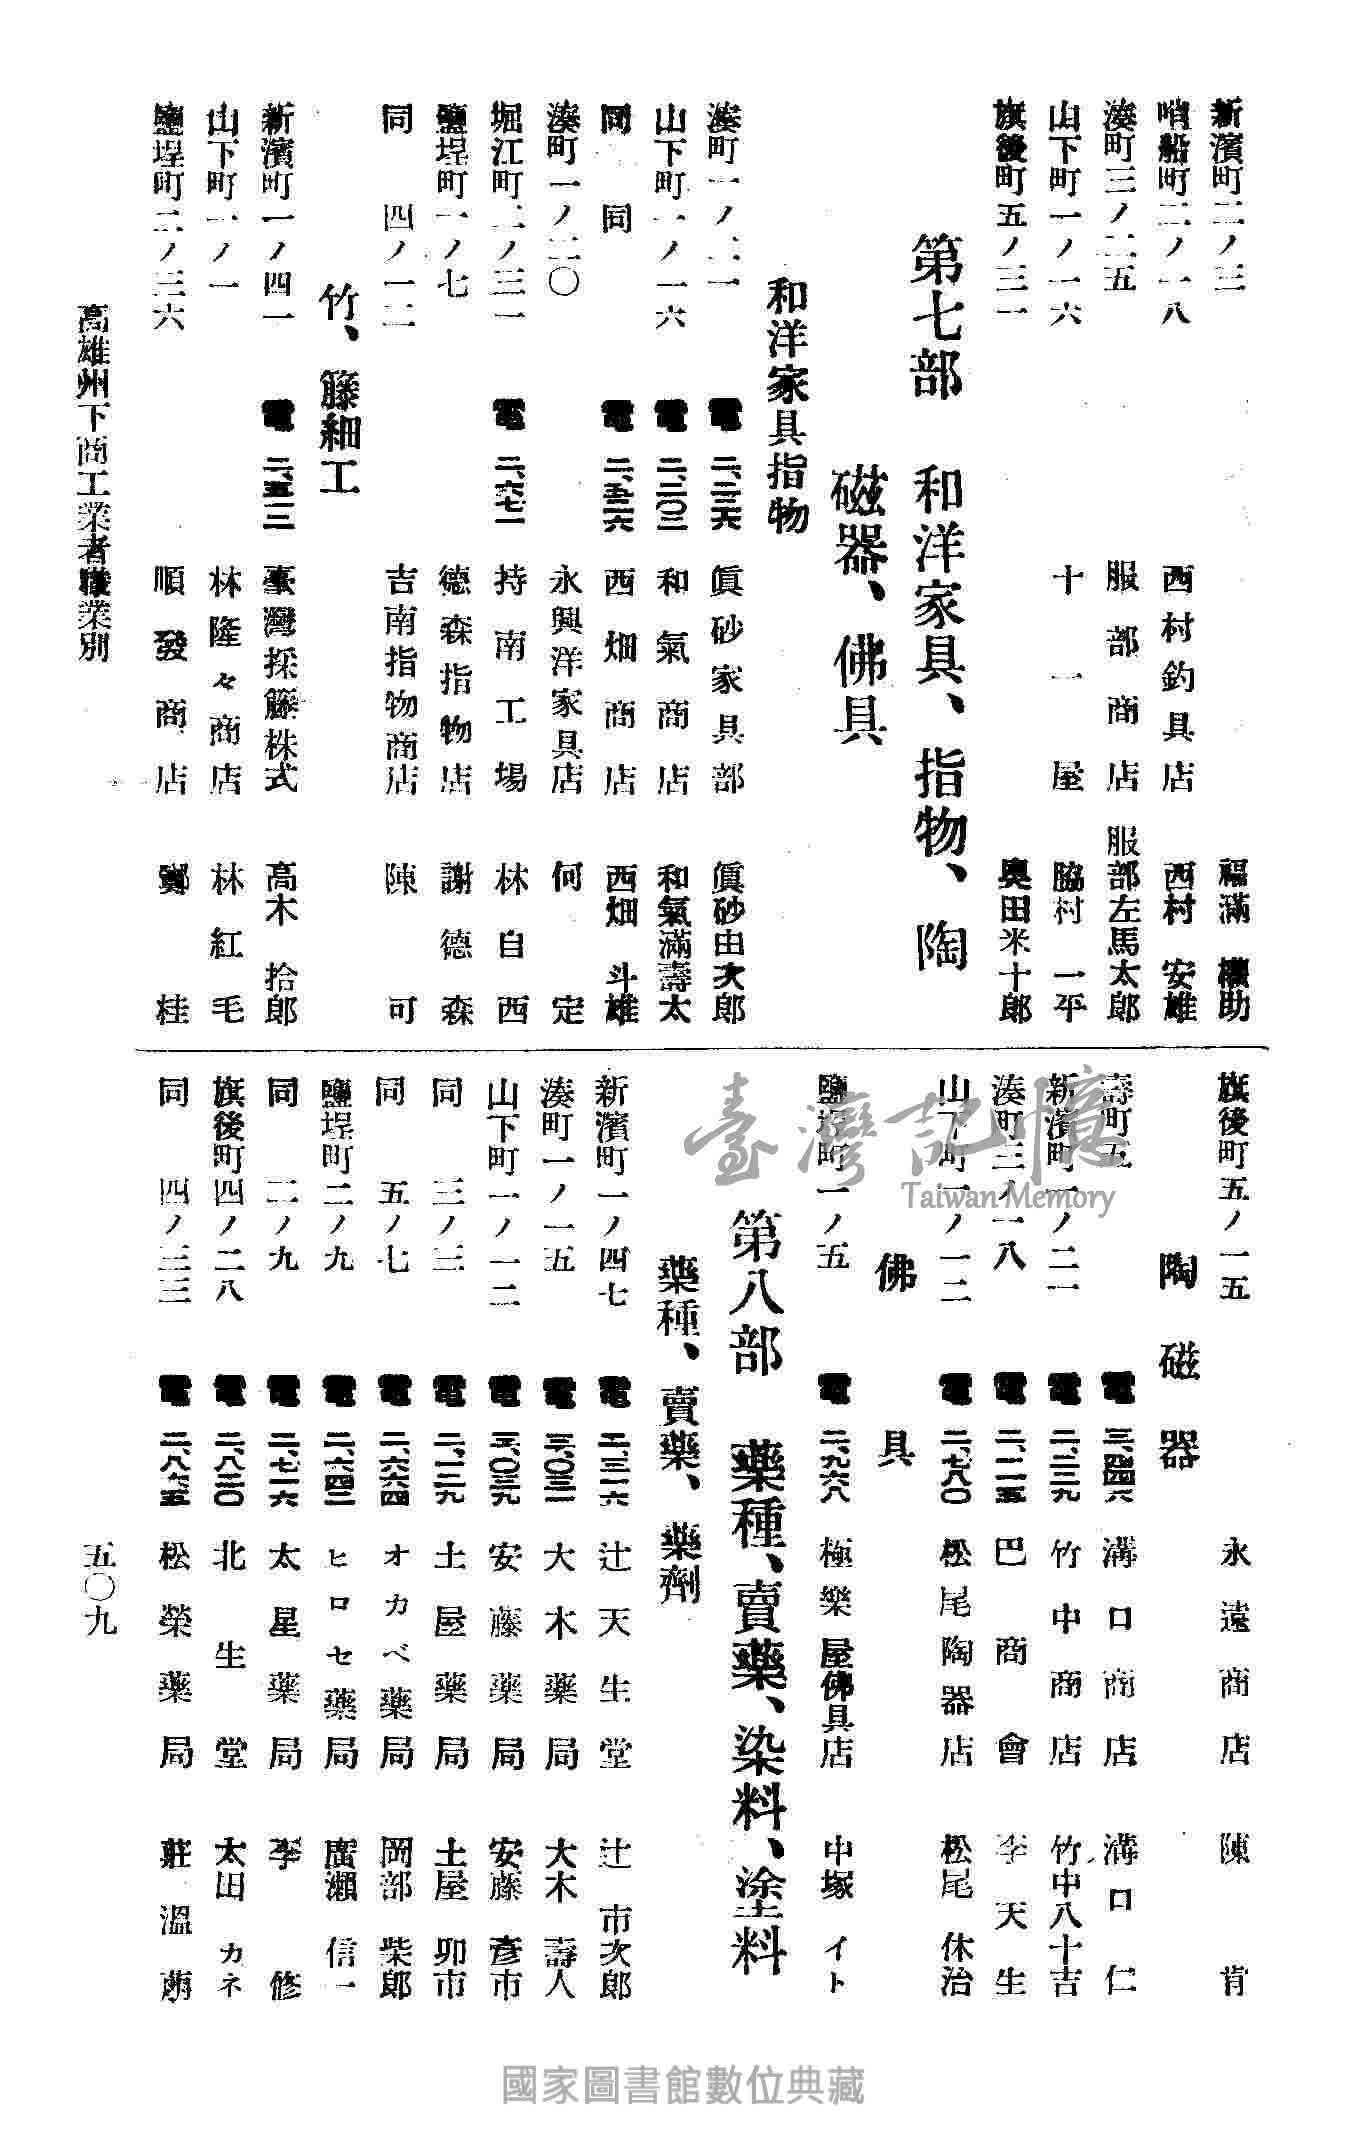 新濱町二ノ三 福滿 助
哨船町二ノ一八 西村釣具店 西村 安雄
湊町三ノ二五 服部商店 服部左馬太郎
山下町一ノ一六 十一屋 脇村 一平
旗後町五ノ三一 奧田米十郎
第七部 和洋家具、指物、陶
磁器、佛具
和洋家具指物
湊町一ノ二一 電 眞砂家具部 眞砂由次郎
山下町一ノ一六 電 二、二〇三 和氣商店 和氣滿壽太
同 同 電 西畑商店 西畑 斗雄
湊町一ノ二〇 永興洋家具店 何 定
堀江町二ノ三一 電 二、六七一 持南工場 林自西
鹽埕町一ノ七 德森指物店 謝德森
同 四ノ一二 吉南指物商店 陳 可
竹、籐細工
新濱町一ノ四一 電 二、五一二 臺灣採籐株式 高木 拾郎
山下町一ノ一 林隆々商店 林紅毛
鹽埕町二ノ三六 順發商店 鄭 桂
旗後町五ノ一五 永遠商店 陳 肯
陶磁器
壽町五 電 三、四四六 溝口商店 溝口仁
新濱町一ノ二一 電 二、二三九 竹中商店 竹中八十吉
湊町三ノ一八 電 二、二一五 巴商會 李天生
山下町一ノ一二 電 二、七八〇 松尾陶器店 松尾休治
佛具
鹽埕町一ノ五 電 二、九六八 極樂屋佛具店 中塚イト
第八部 藥種、賣藥、染料、塗料
藥種、賣藥、藥劑
新濱町一ノ四七 電 二、三一六 辻天生堂 辻 市次郎
湊町一ノ一五 電 三、〇三一 大木藥局 大木壽人
山下町一ノ一二 電 三、〇三九 安藤藥局 安藤彥市
同 三ノ三 電 二、一二九 土屋藥局 土屋卯市
同 五ノ七 電 二、六六四 オカベ藥局 岡部柴郎
鹽埕町二ノ九 電 二、六四二 ヒロセ藥局 廣瀨信一
同 二ノ九 電 二、七一六 太星藥局 李 修
旗後町四ノ二八 電 二、八二〇 北生堂 太田カネ
同 四ノ三三 電 二、八六五 松榮藥局 莊溫
高雄州下商工業者職業別
五〇九
臺灣記憶
Taiwan Memory
國家圖書館數位典藏